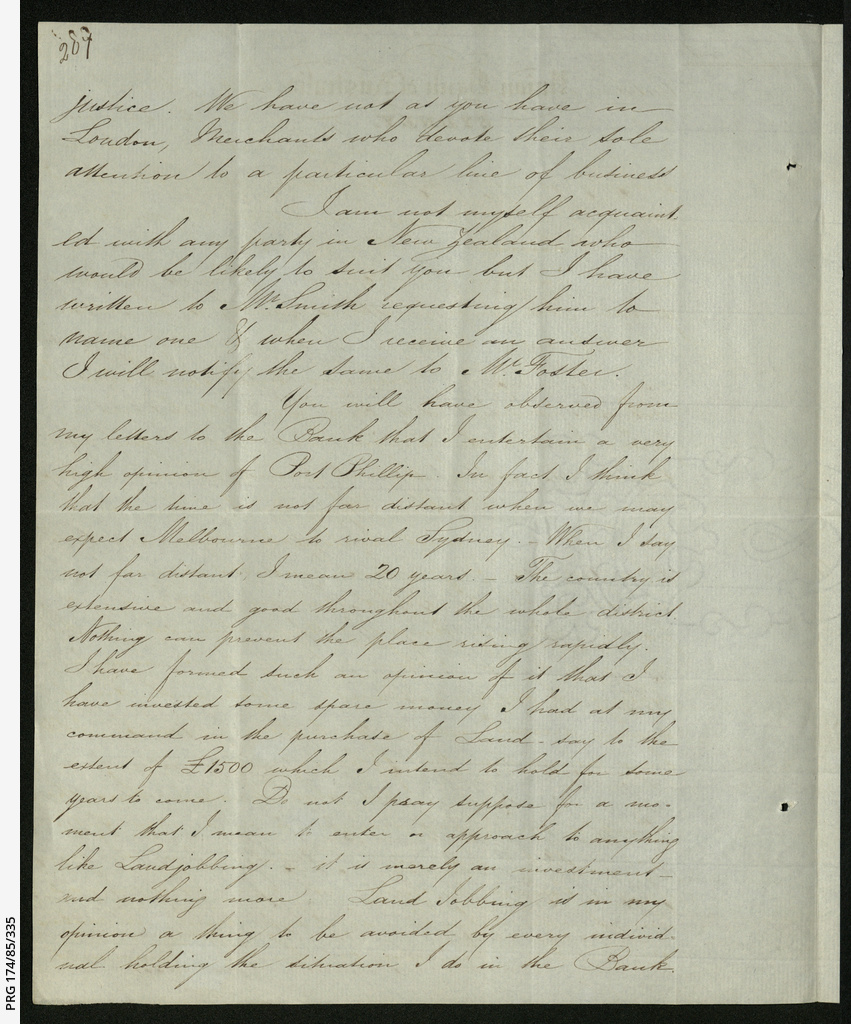 287
justice. We have not as you have in
London, Merchants who devote their sole
attention to a particular line of business
I am not myself acquaint-
ed with any party in New Zealand who
would be likely to suit you but I have
written to Mr. Smith requesting him to
name one & when I receive an answer
I will notify the same to Mr. Foster.
You will have observed from
my letters to the Bank that I entertain a very
high opinion of Port Phillip. In fact I think
that the time is not far distant when we may
expect Melbourne to rival Sydney. - When I say
not far distant, I mean 20 years. - The country is
extensive and good throughout the whole district.
Nothing can prevent the place rising rapidly.
I have formed such an opinion of it that I
have invested some spare money I had at my
command in the purchase of Land - say to the
extent of £1500 which I intend to hold for some
years to come. Do not I pray suppose for a mo-
ment that I mean to enter on approach to anything
like Landjobbing. - it is merely an investment
and nothing more Land Jobbing is in my
opinion a thing to be avoided by every individ-
ual holding the situation I do in the Bank.
PRG 174/85/335